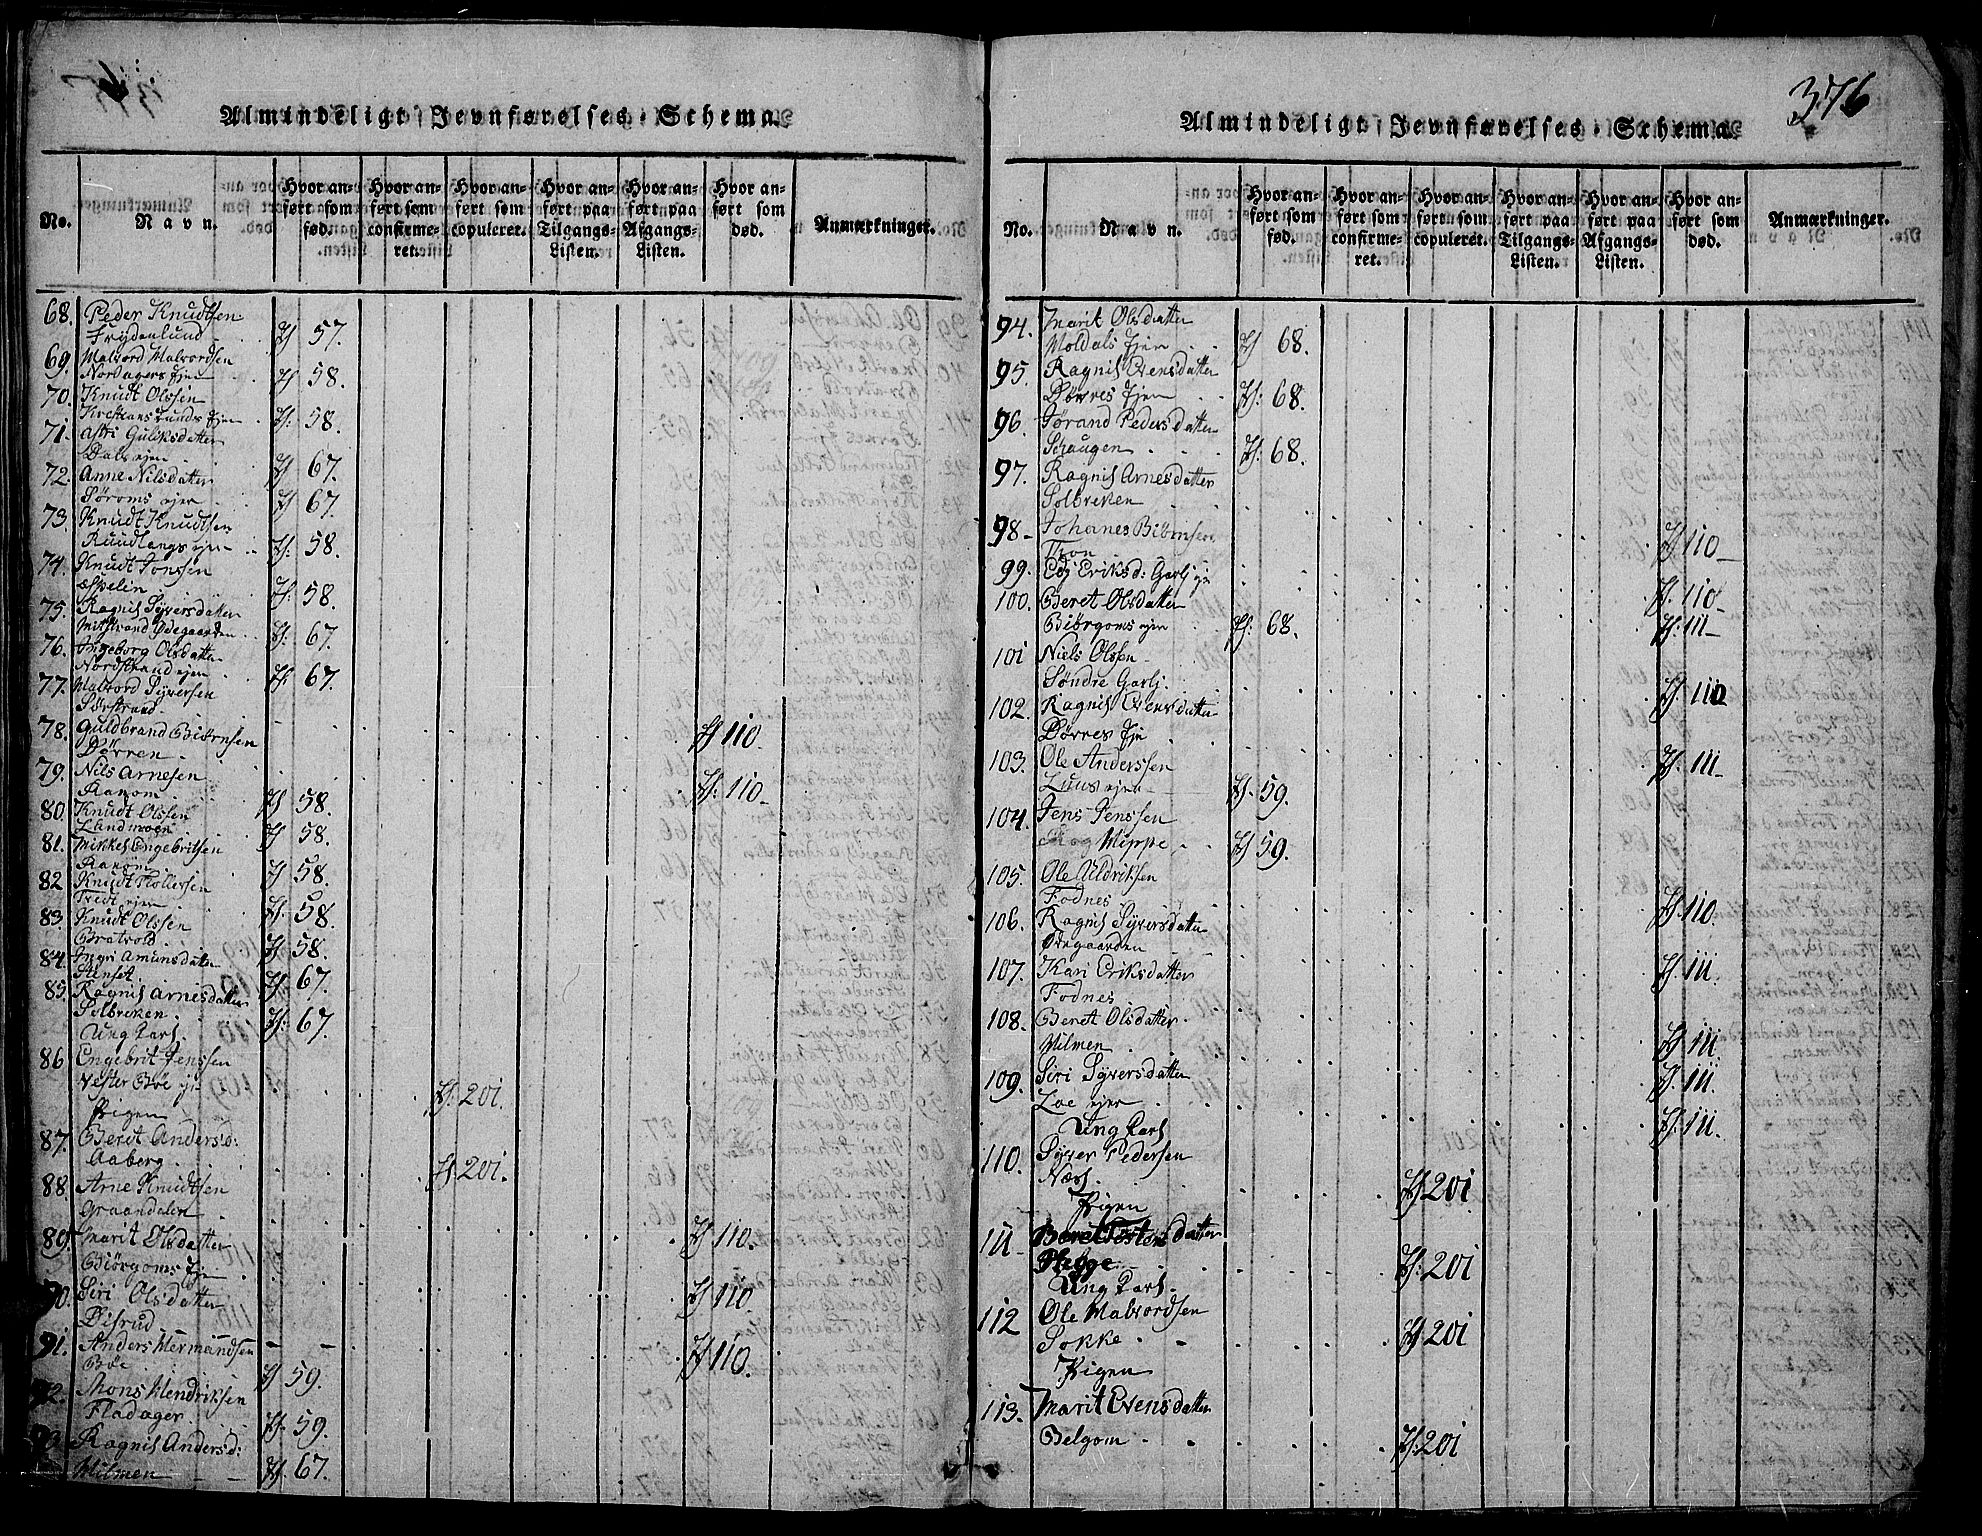 Almindeligt Jevnførelses-Schema.
No.
Navn.
Hvor anført som fød.
Hvor anført som confirmeret.
Hvor anført som copuleret.
Hvor anført paa Tilgangs-Listen.
Hvor anført paa Afgangs-Listen.
Hvor anført som død.
Anmærkninger.
68. Peder Knudtsen
Frydenlund 57.
69. Malvord Malvordsen
Nordagers Ejen 58.
70. Knudt Olssen
Kristianslunds Ejen 58.
71. Astri Guliksdatter
Dals ejen 67.
72. Anne Nilsdatter
Søroms ejen 67.
73. Knudt Knudtsen
Ruudlangs ejen 58.
74. Knudt Jonssen
58.
75. Ragnil Syversdatter
Midstrand Ødegaarden 67.
76. Ingeborg Olsdatter
Nordstrand ejen 67.
77. Malvord Syversen
Sørstrand.
78. Guldbrand Biørnsen 110.
Dørren.
79. Nils Arnesen 110.
Ranom 58.
80. Knudt Olssen
Landmoen 58.
81. Mikkel Engebritsen
Ranøm 58.
82 Knudt Tollefsen
ejen 58.
83. Knudt Olssen
Bratvold. 58.
84. Ingri Amunsdatter
Stenset 67.
85. Ragnil Arnesdatter
Solbrekken. 67.
Ung Karl.
86 Engebrit Jenssen
Vester Bøe ej 201.
Pigen
87. Berit Andersd:
Aaberg. 201.
88. Arne Knudtsen
Graandalen 110.
89. Marit Olsdatter
Biørgoms Ejen 110.
90. Siri Olsdatter
Disrud 110.
91. Anders Hermandsen
Bøe 59.
92. Mons Hendriksen
Fladager. 59.
93. Ragnil Andersd:
Hilmen 67.
376
Almindeligt Jevnførelses-Schema.
No.
Navn.
Hvor anført som fød.
Hvor anført som confirmeret.
Hvor anført som copuleret.
Hvor anført paa Tilgangs-Listen.
Hvor anført paa Afgangs-Listen.
Hvor anført som død.
Anmærkninger.
94. Marit Olsdatter
Moldals Ejen 68.
95. Ragnil Evensdatter
Dørres Ejen 68.
96. Jørand Pedersdatter
Schaugen 68.
97. Ragnil Arnesdatter
Solbrekken 110
98 Johanes Biørnsen
Thon 110
99. Eriksd: Garlj
100. Beret Olsdatter 111
Biørgoms ejen 68.
101 Niels Olssen
Søndre Garlj. 110
102. Ragnil Evensdatter
Dørres Eje 111
103. Ole Anderssen
Luus ejen 59.
104. Jens Jenssen
59.
105. Ole Uldriksen
Fodnes 110.
106. Ragnil Syversdatter
Ødegaarden 111.
107. Kari Eriksdatter
Fodnes 111.
108. Beret Olsdatter
Hilmen 111.
109. Siri Syversdatter
Loe ejer 111.
Ung Karl
110. Syver Pedersen
Næs. 201
Pigen
111 Beret Tostensdatter
Hegge 201
Ung Karl.
112 Ole Malvordsen
Sokke 201
Pigen
113. Marit Evensdatter
Belgom 201